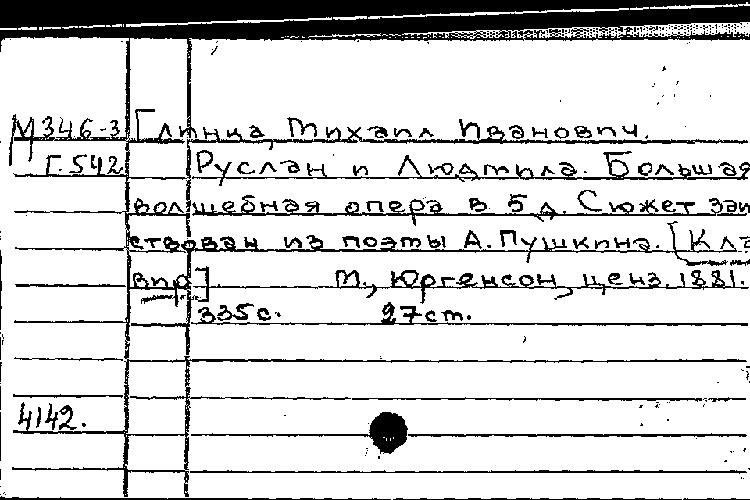 М346-3 Глинка, Михаил Иванович.
Г.542 Руслан и Людмила. Большая
волшебная опера в 5 д. Сюжет заи
ствован из поэмы А. Пушкина. [Кла
вир]. М., Юргенсон, ценз. 1881.
335 с. 27 см.
4142.